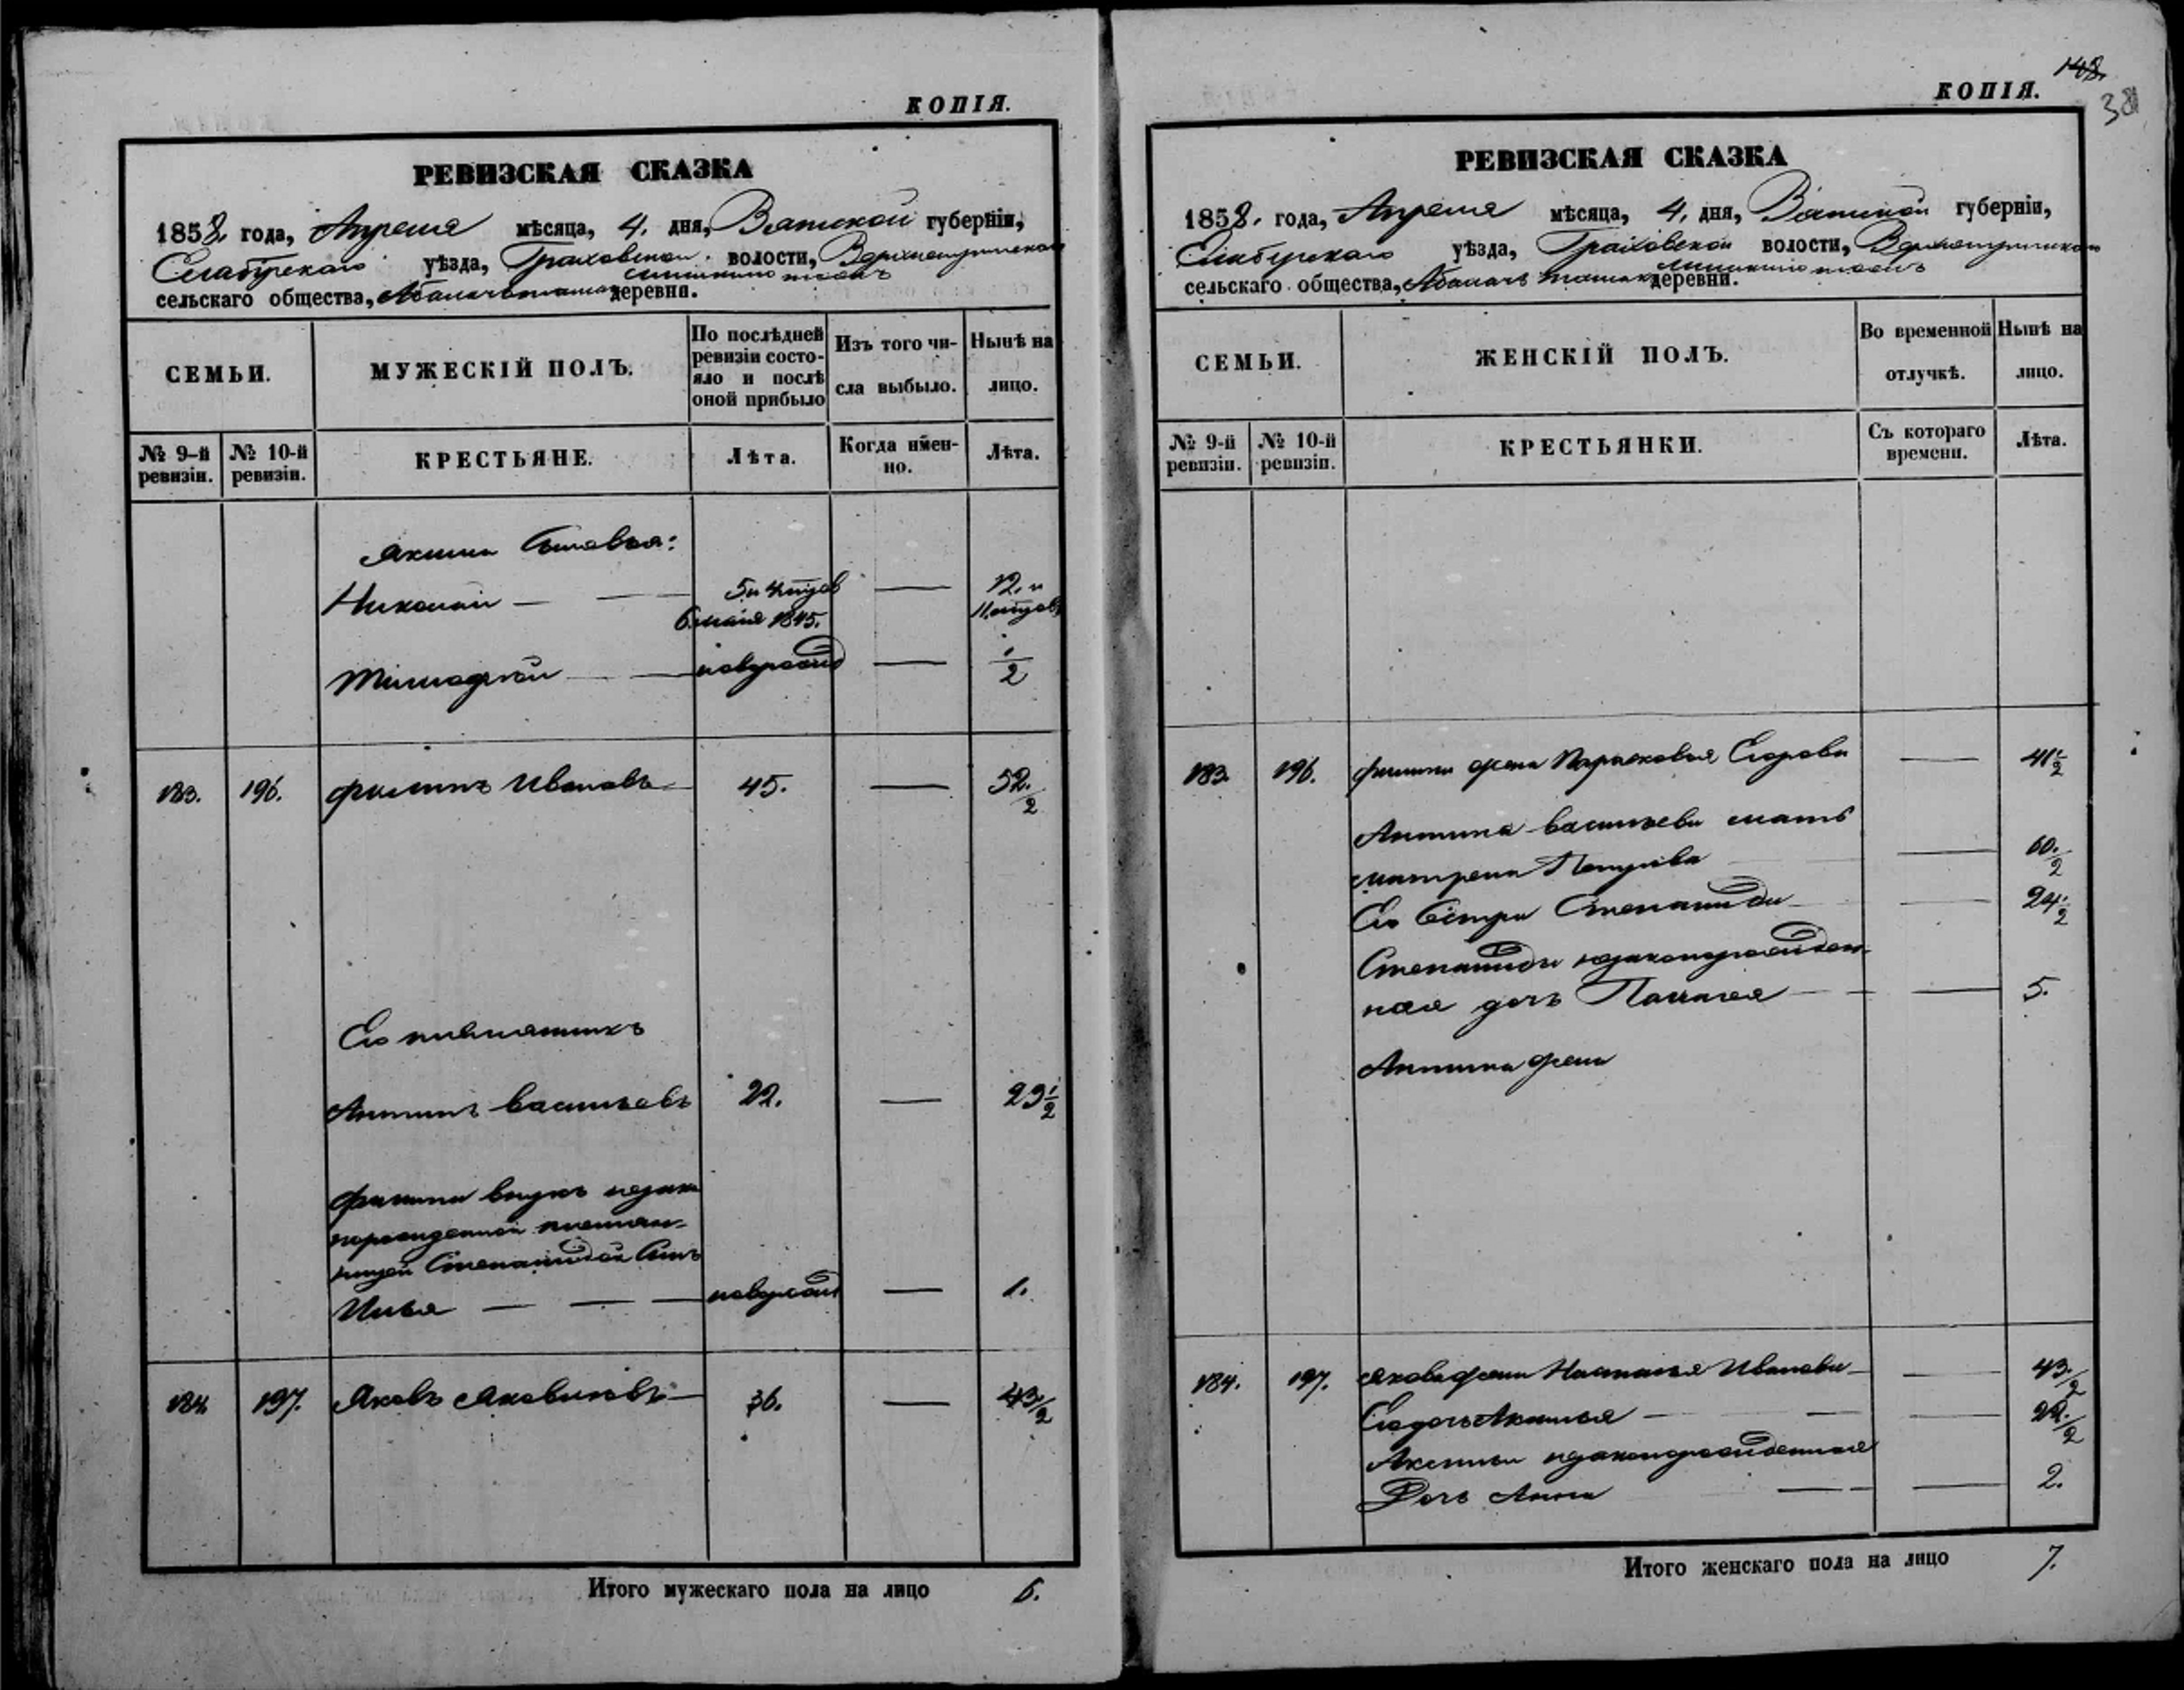 КОПІЯ.
РЕВИЗСКАЯ СКАЗКА
1858. года, Апреля мѣсяца, 4. дня, Вятской губерніи,
Елабужскаго уѣзда, Граховской волости,
сельскаго общества, деревни.
СЕМЬИ.
МУЖЕСКІЙ ПОЛЪ.
По послѣдней ревизіи состо-
яло и послѣ оной прибыло
Изъ того чи-
сла выбыло.
Нынѣ на лицо.
№ 9-й ревизіи.
№ 10-й ревизіи.
КРЕСТЬЯНЕ.
Лѣта.
Когда имен-
но.
Лѣта.
сыновья:
Николай — — 5 и 4 — 12. и
6. мая 1845. 11.
Тимофей — — новурожд — 1/2
183. 196. Филипъ Ивановъ — 45. — 52. 1/2
Его племянникъ
Антипъ Васильевъ 22. — 29 1/2
Филипа внукъ незако
норожденной племян-
ницей Степанидой сынъ
Илья — — — новурожд — 1.
184. 197. Яковъ Яковлевъ — 36. — 43 1/2
Итого мужескаго пола на лицо 6.
148.
КОПІЯ.
38
РЕВИЗСКАЯ СКАЗКА
1858. года, Апреля мѣсяца, 4. дня, Вятской губерніи,
Елабужскаго уѣзда, Граховской волости,
сельскаго общества, деревни.
СЕМЬИ.
ЖЕНСКІЙ ПОЛЪ.
Во временной
отлучкѣ.
Нынѣ на
лицо.
№ 9-й ревизіи.
№ 10-й ревизіи.
КРЕСТЬЯНКИ.
Съ котораго
времени.
Лѣта.
183. 196. Филипа жена Парасковья Егорова — 41 1/2
Антипа Васильева мать
Матрена Петрова — 60. 1/2
Его сестра Степанида — 24 1/2
Степаниды незаконорожден-
ная дочь Палагея — 5.
Антипа жена
184. 197. Якова жена Наталья Иванова — 43. 1/2
Его дочь Аксинья — 22. 1/2
Аксиньи незаконорожденная
Дочь Анна — 2.
Итого женскаго пола на лицо 7.